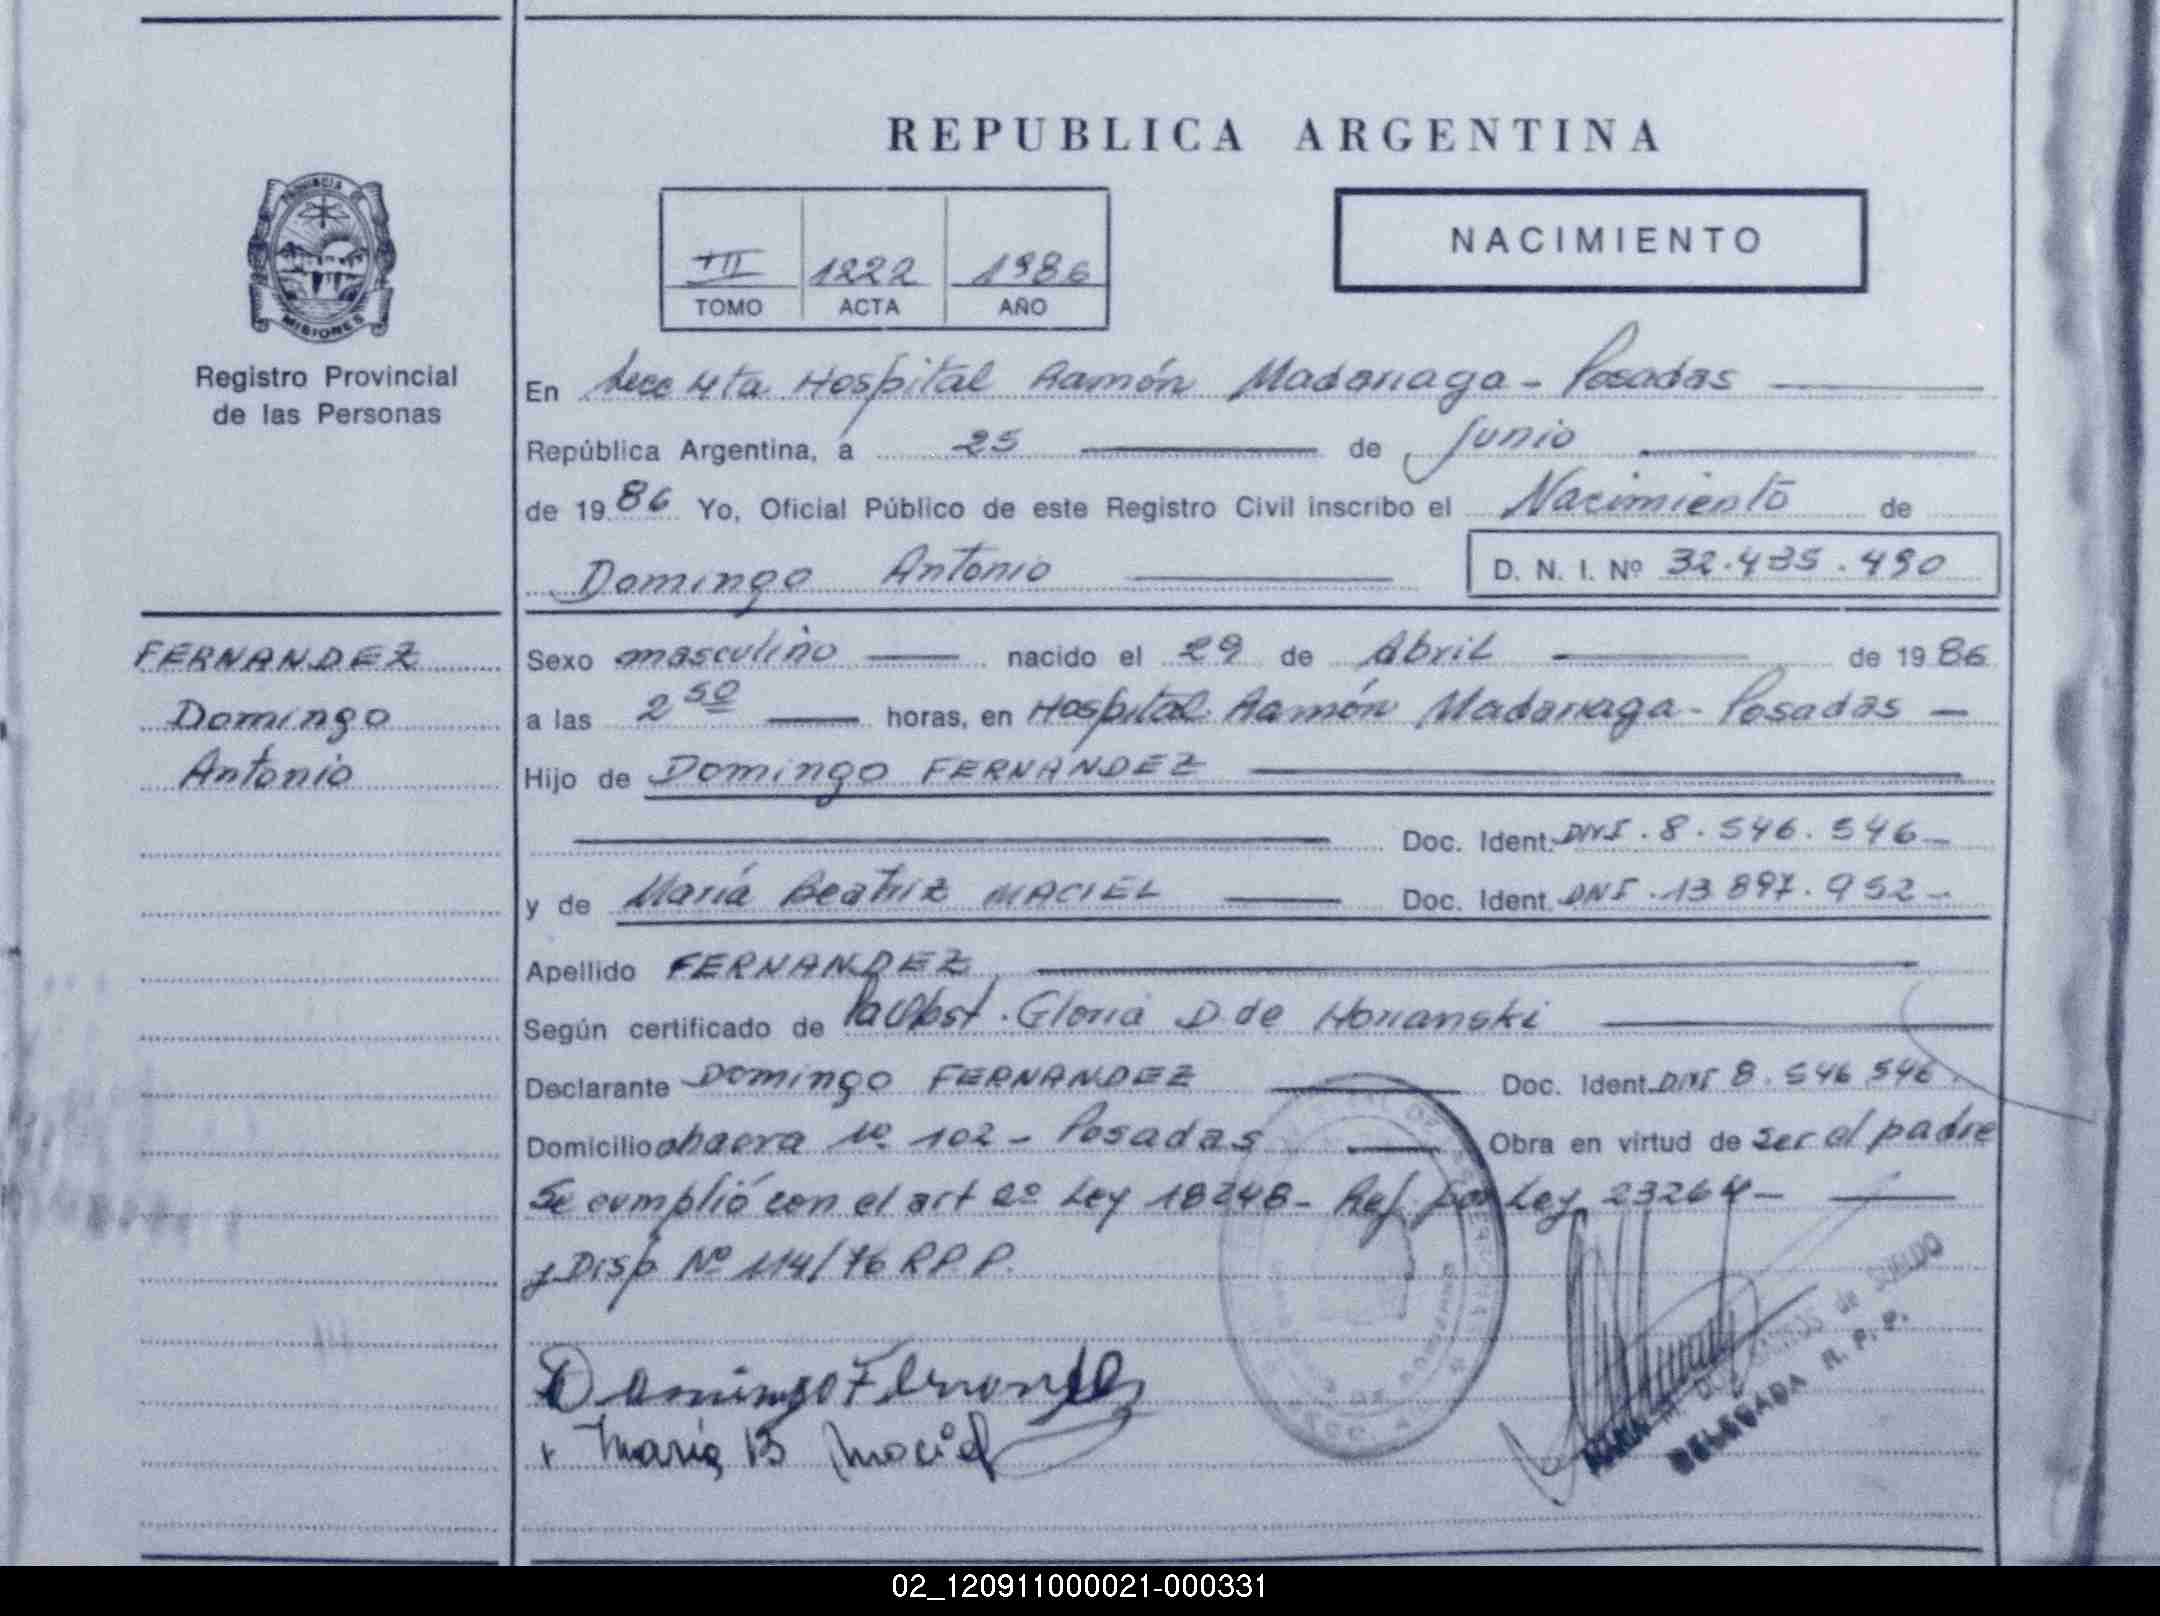 REPUBLICA ARGENTINA
PROVINCIA DE
MISIONES
Registro Provincial
de las Personas
III 1222 1986
TOMO ACTA AÑO
NACIMIENTO
En Secc 4ta Hospital Ramón Madariaga - Posadas
República Argentina, a 25 de Junio
de 1986 Yo, Oficial Público de este Registro Civil inscribo el Nacimiento de
Domingo Antonio D. N. I. Nº 32.435.490
FERNANDEZ
Domingo
Antonio
Sexo masculino nacido el 29 de Abril de 1986
a las 2 50 horas, en Hospital Ramón Madariaga - Posadas -
Hijo de Domingo FERNANDEZ
Doc. Ident. DNI. 8.546.546-
y de María Beatriz MACIEL Doc. Ident. DNI. 13 897.952-
Apellido FERNANDEZ
Según certificado de Obst. Gloria D de
Declarante Domingo FERNANDEZ Doc. Ident. DNI 8.546 546
Domicilio chacra 102 - Posadas Obra en virtud de ser el padre
Se cumplió con el art 2º Ley 18248 - Ref. por Ley 23264 -
y Disp Nº 114/76 R.P.P.
Domingo Fernandez
Maria B Maciel
de
DELEGADA R. P. P.
02_120911000021-000331